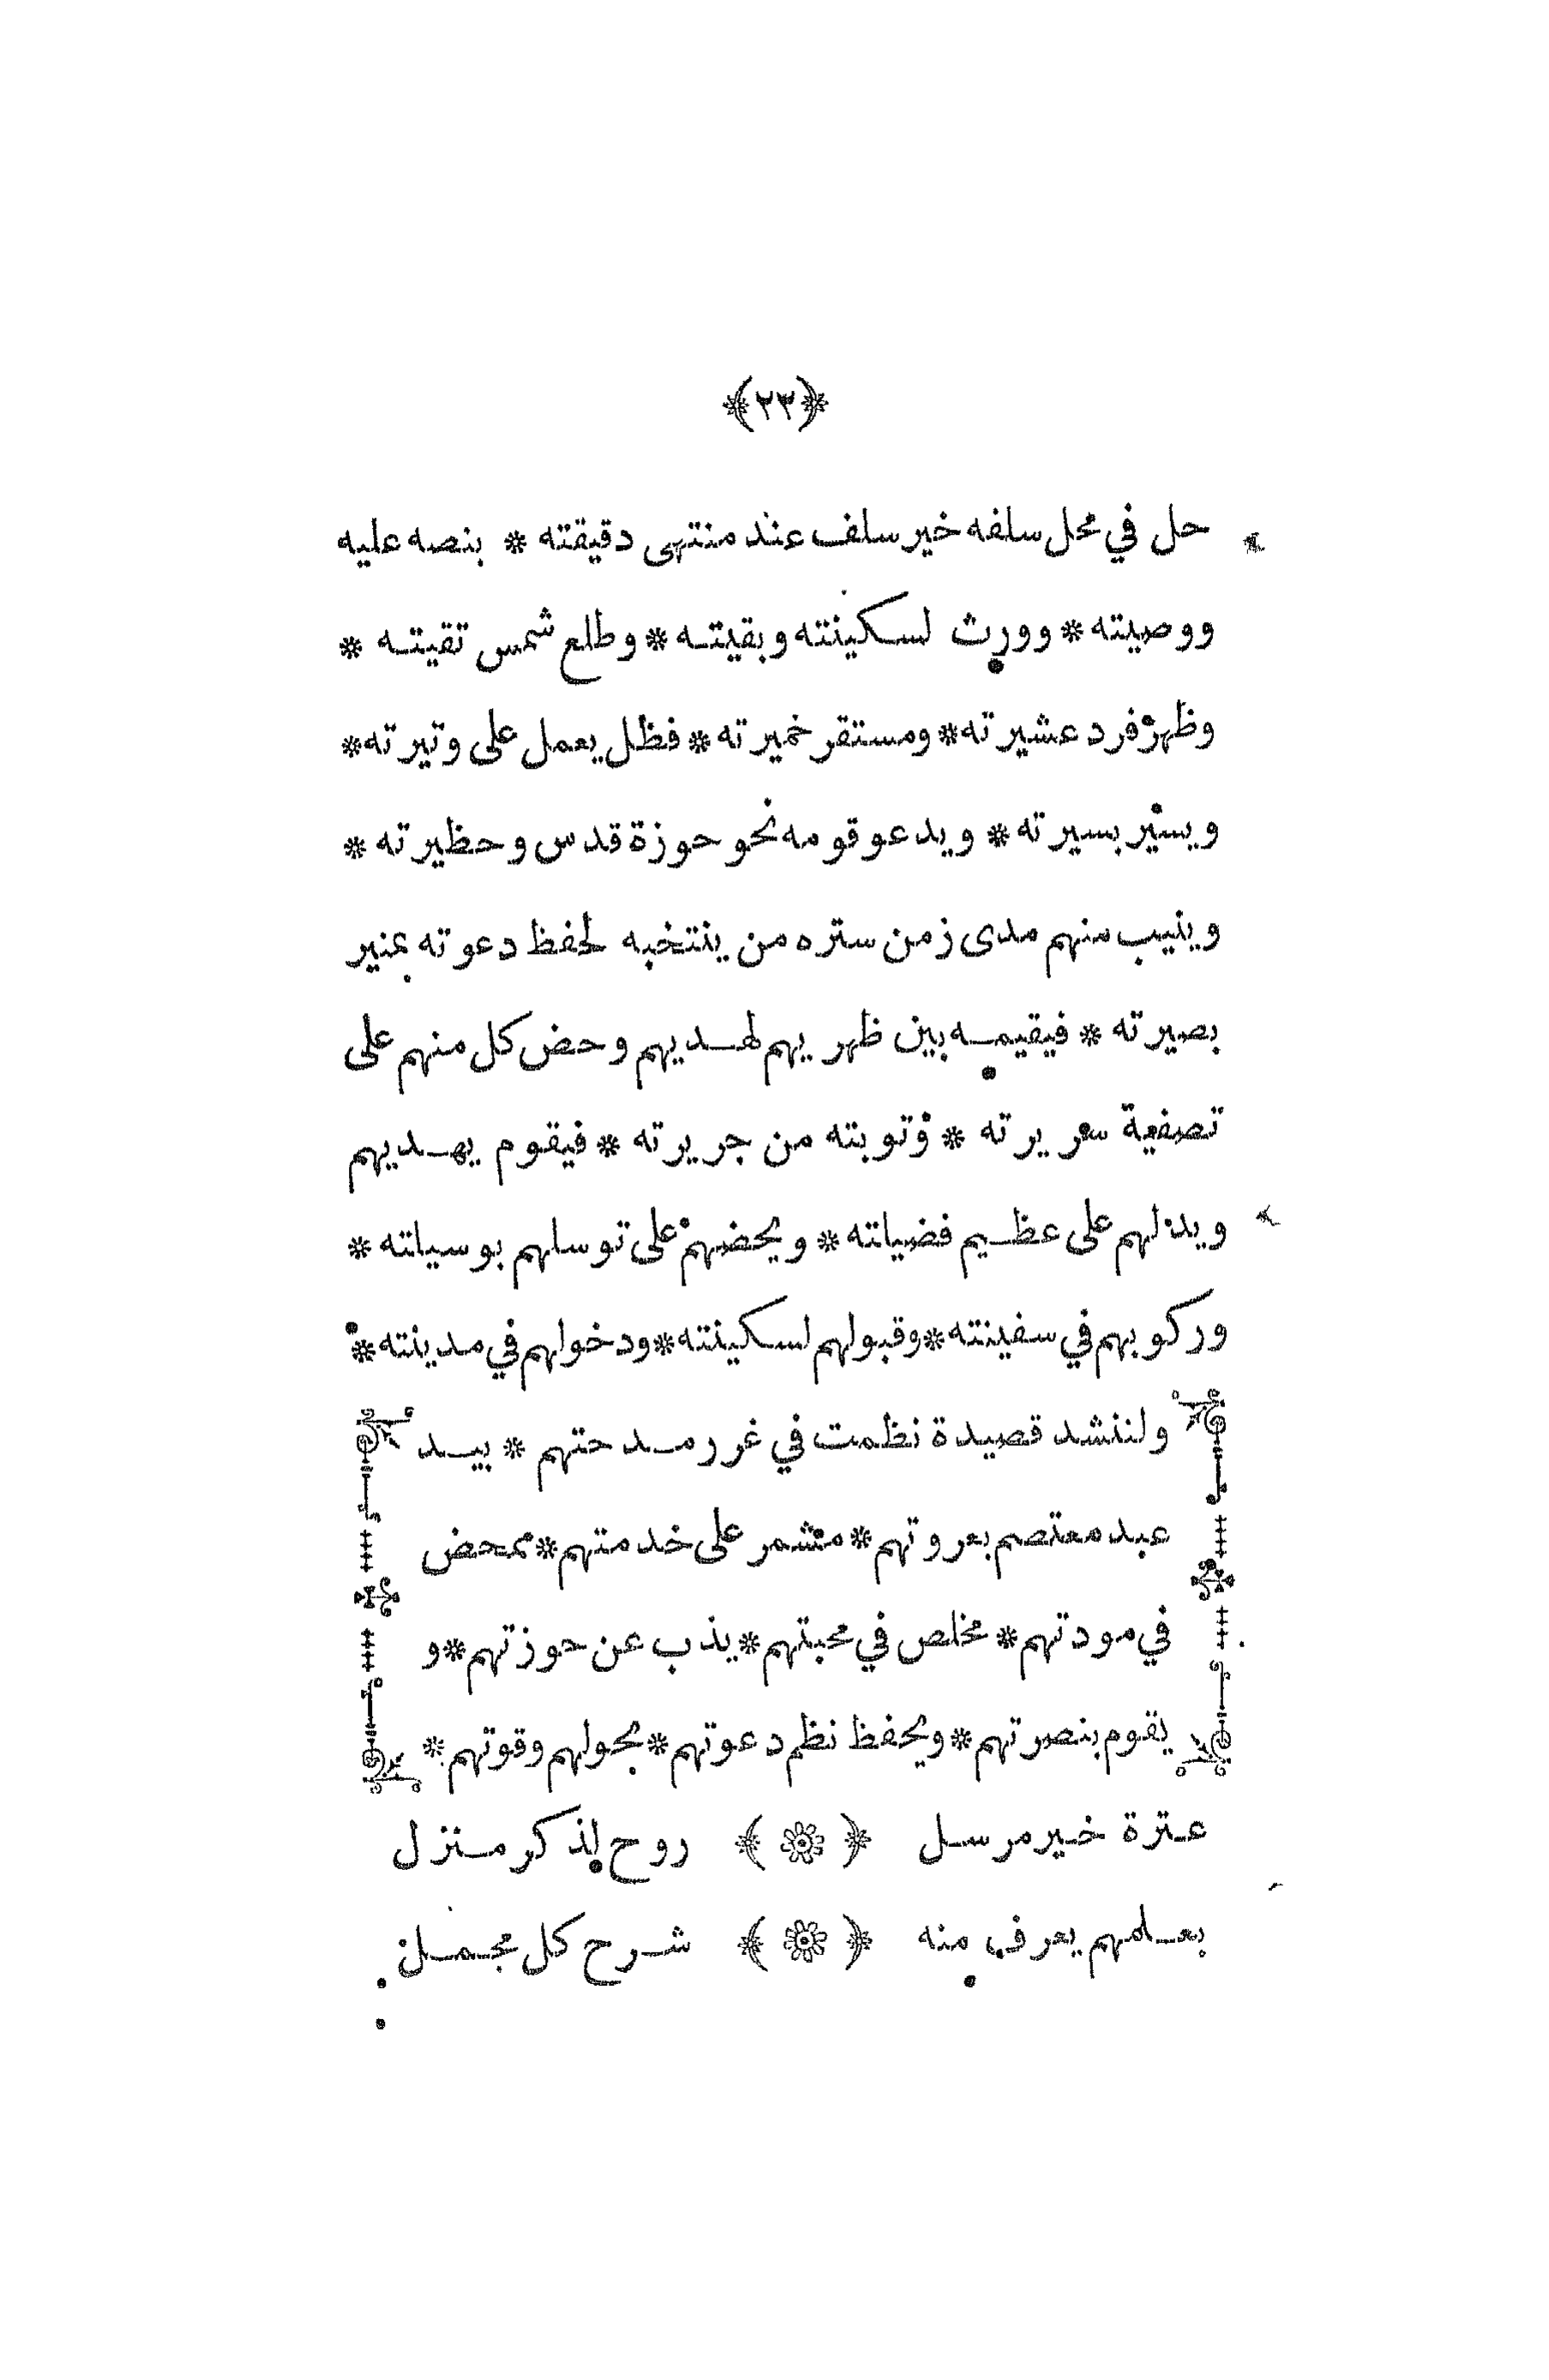 ﴿٢٣﴾
حل في محل سلفه خير سلف عند منتهى دقيقته * بنصه عليه
ووصيته * وورث لسكينته وبقيته * وطلع شمس تقيته *
وظهر فرد عشيرته * ومستقر خميرته * فظل يعمل على وتيرته *
ويسير بسيرته * ويدعو قومه نحو حوزة قدس وحظيرته *
وينيب منهم مدى زمن ستره من ينتخبه لحفظ دعوته بمنير
بصيرته * فيقيمه بين ظهريهم لهديهم وحض كل منهم على
تصفية سريرته * وتوبته من جريرته * فيقوم يهديهم
ويدلهم على عظيم فضيلته * ويحضهم على توسلهم بوسيلته *
وركوبهم في سفينته * وقبولهم لسكينته * ودخولهم في مدينته *
ولننشد قصيدة نظمت في غرر مدحتهم * بيد
عبد معتصم بعروتهم * متشمر على خدمتهم * ممحض
في مودتهم * مخلص في محبتهم * يذب عن حوزتهم * و
يقوم بنصرتهم * ويحفظ نظم دعوتهم * بحولهم وقوتهم *
عترة خير مرسل ﴿ ۞ ﴾ روح لذكر منزل
بعلمهم يعرف منه ﴿ ۞ ﴾ شرح كل مجمل